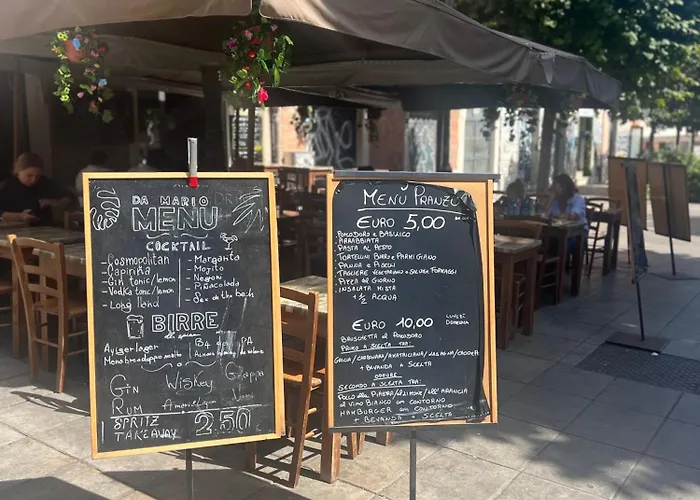 DA MARIO
MENÙ
COCKTAIL
- Cosmopolitan
- Capririka
- Gin tonic/lemon
- Cynar tonic/lemon
- Long Iland
- Margarita
- Mojito
- Negroni
- Pinacolada
- Sex on the beach
BIRRE
alla spina
Ayingerlager
B4
IPA
GIN
Wiskey
Grappa
RUM
SPRITZ
TAKEAWAY
2.50
MENÙ PRANZO
EURO 5,00
POMODORO E BASILICO
ARRABBIATA
PASTA AL PESTO
TORTELLINI BURRO E PARMIGIANO
PANDA E PISELLI
TAGLIERE VEGETARIANO E SALUMI FORMAGGI
PIZZA DEL GIORNO
INSALATA MISTA
+ ½ ACQUA
EURO 10,00
LUNEDÌ
DOMENICA
BRUSCHETTA AL POMODORO
PRIMO A SCELTA TRA:
GRICIA/CARBONARA/AMATRICIANA/
+ BEVANDA A SCELTA
OPPURE
SECONDO A SCELTA TRA:
POLLO ALLA PIASTRA/AL LIMONE/ALL'ARANCIA
AL VINO BIANCO CON CONTORNO
HAMBURGER CON CONTORNO
+ BEVANDA A SCELTA